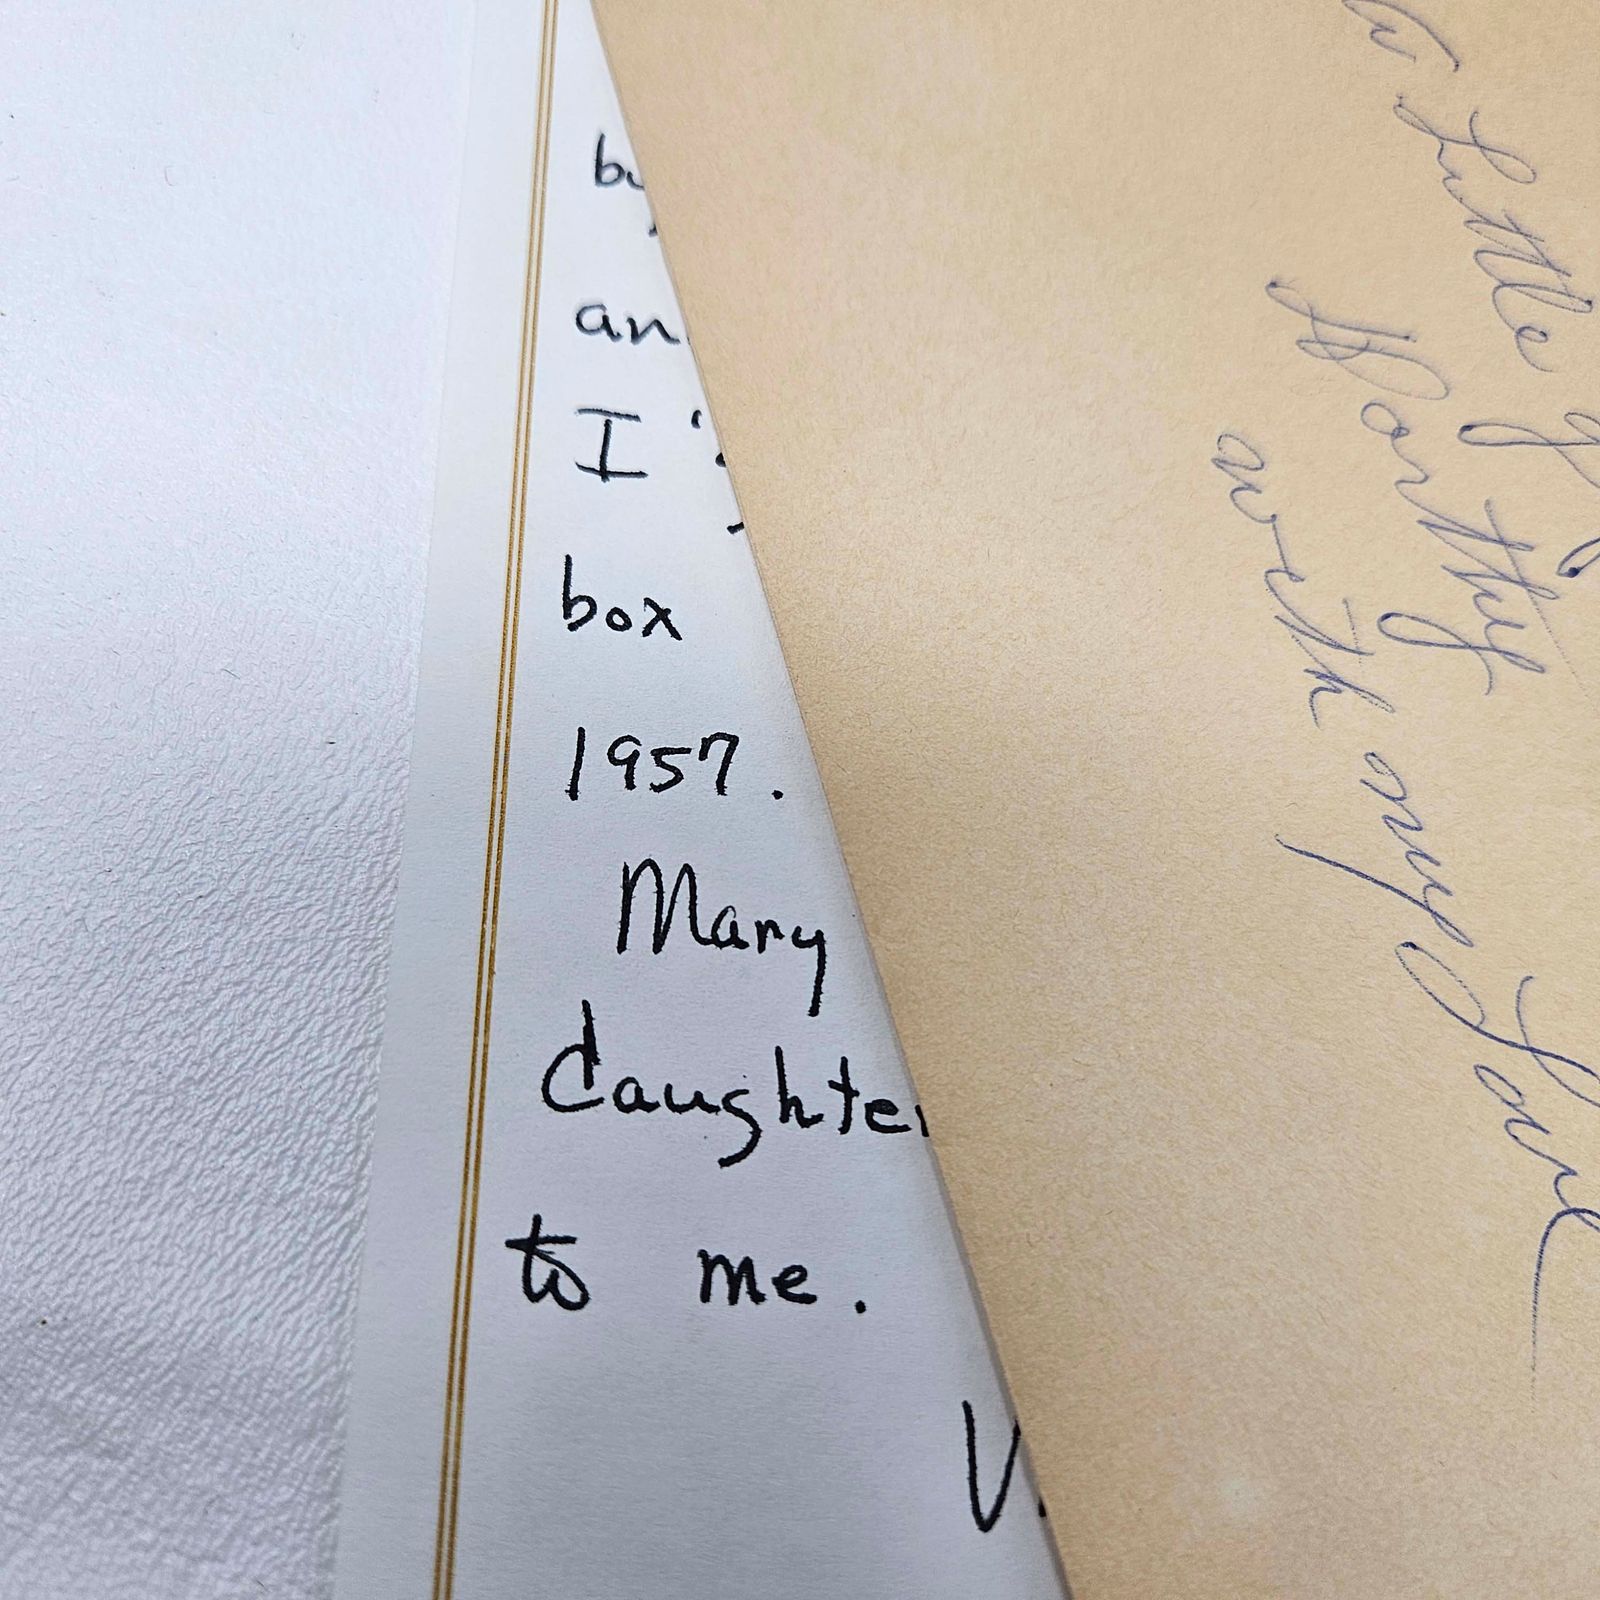 an
box
1957.
Mary
daughter
to me.
Little
Worthy
with my Love